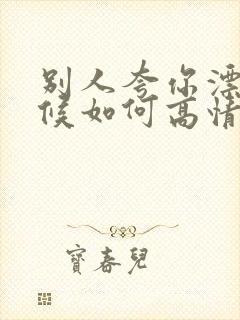 别人夸你漂
候如何高情
寳春兒